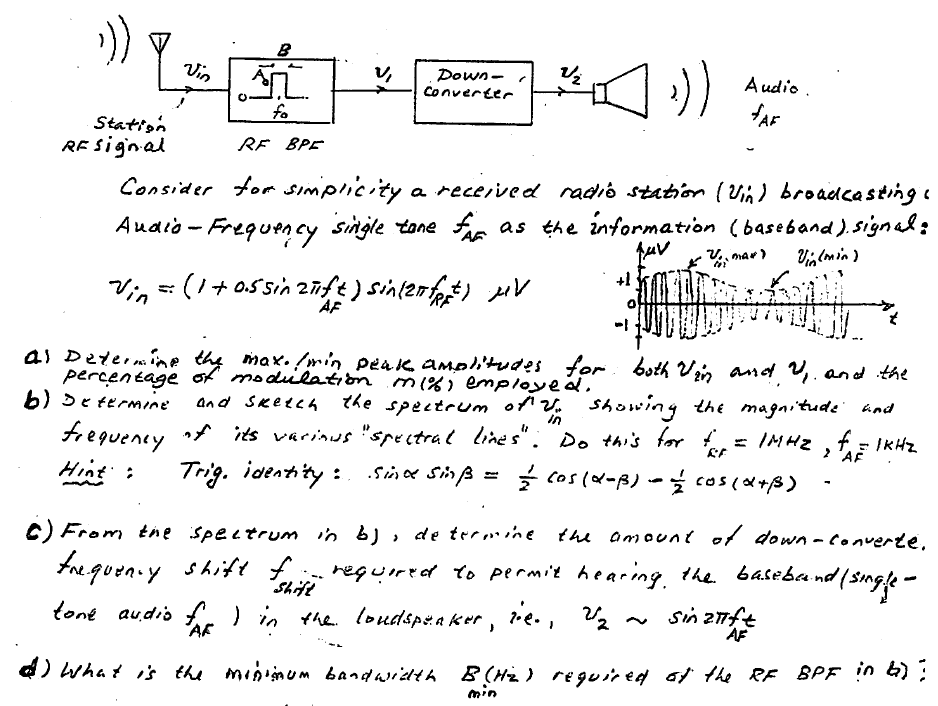 B
A₀
0
f₀
Vin
V₁
Down-
Converter
V₂
Audio
f_AF
Station
RF signal
RF BPF
Consider for simplicity a received radio station (Vin) broadcasting
Audio-Frequency single tone f_AF as the information (baseband) signal:
Vin = (1 + 0.5 sin 2πf_AF t) sin(2πf_RF t) μV
μV
Vin(max)
Vin(min)
+1
0
-1
t
a) Determine the max./min peak amplitudes for both Vin and V₁ and the
percentage of modulation m(%) employed.
b) Determine and sketch the spectrum of Vin showing the magnitude and
frequency of its various "spectral lines". Do this for f_RF = 1MHz, f_AF = 1KHz
Hint: Trig. identity: sinα sinβ = ½ cos(α-β) - ½ cos(α+β)
c) From the spectrum in b), determine the amount of down-converte
frequency shift f_shift required to permit hearing the baseband (single-
tone audio f_AF) in the loudspeaker, i.e., V₂ ~ sin 2πf_AF t
d) What is the minimum bandwidth B_min (Hz) required of the RF BPF in b)?